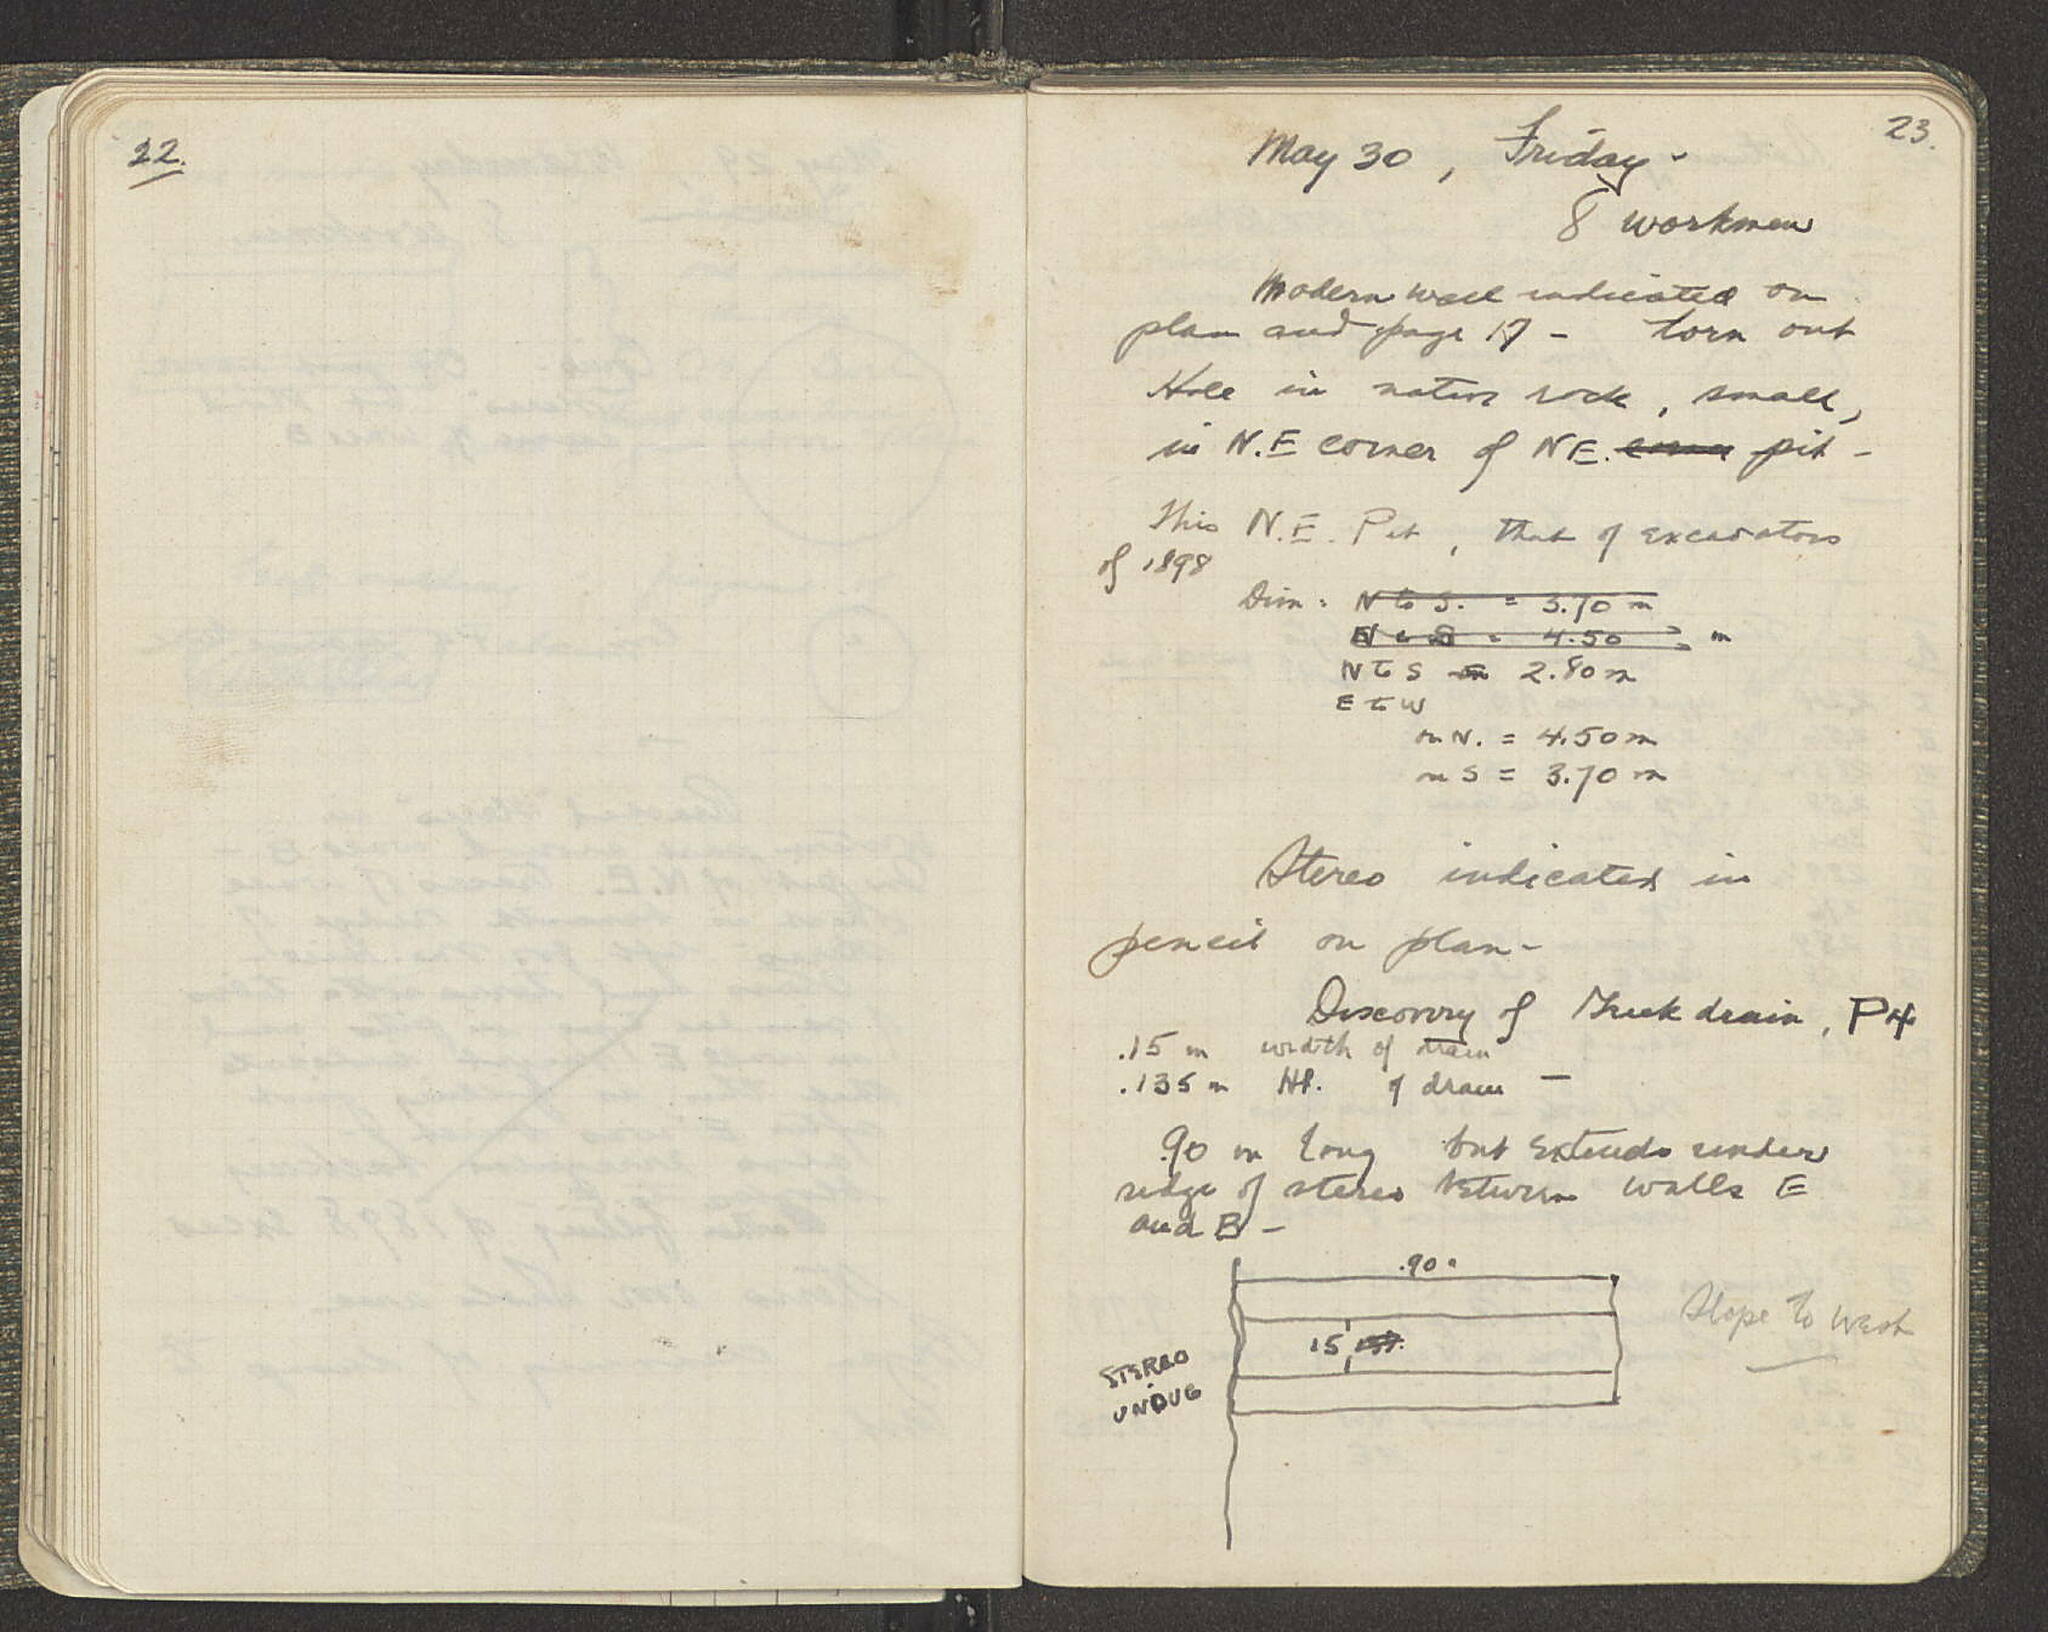 22.
23.
May 30, Friday -
8 workmen
Modern wall indicated on
plan and page 17 - torn out
Hole in native rock, small,
in N.E corner of NE. corner pit -
This N.E. Pit, that of excavators
of 1898
Dim: N to S. = 3.70 m
= 4.50 m
N to S = 2.80 m
E to W
on N. = 4.50 m
on S = 3.70 m
Stereo indicated in
pencil on plan -
Discovery of Greek drain, P4
.15 m width of drain
.135 m Ht. of drain -
.90 m long but extends under
ridge of stereo between walls E
and B -
.90
15
STEREO
UNDUG
Slope to West